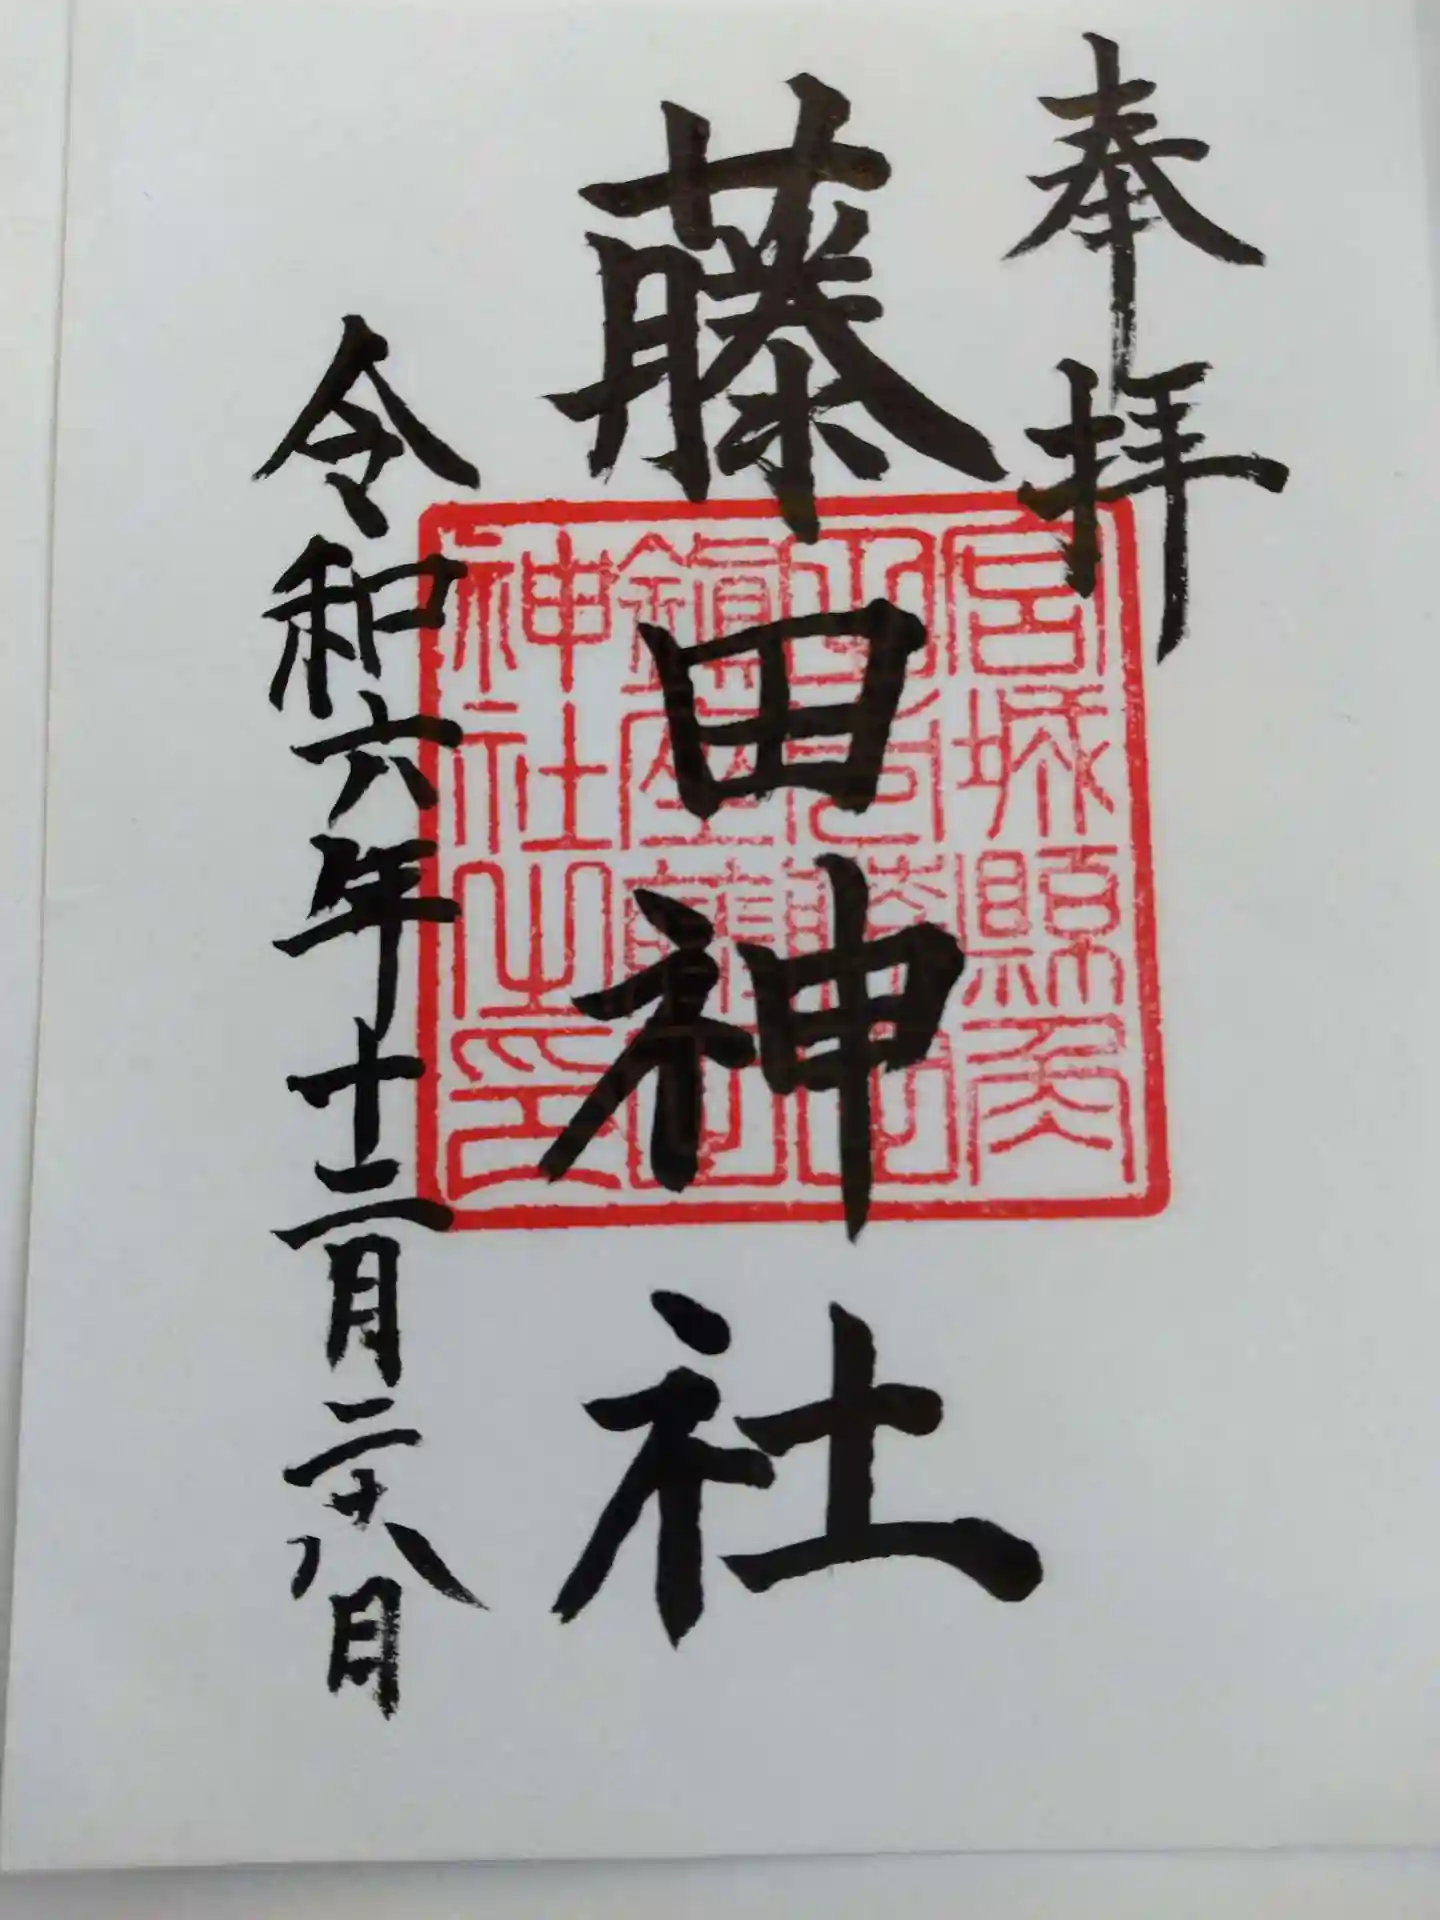 奉拝
藤田神社
令和六年十二月二十八日
宮城縣
鎮座藤田
神社之印